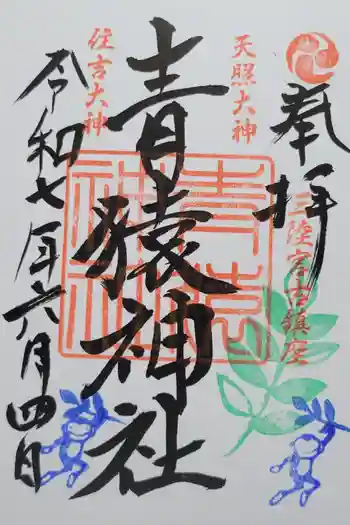 奉拝
三陸宮古鎮座
天照大神
青猿神社
住吉大神
令和七年六月四日
青猿神社